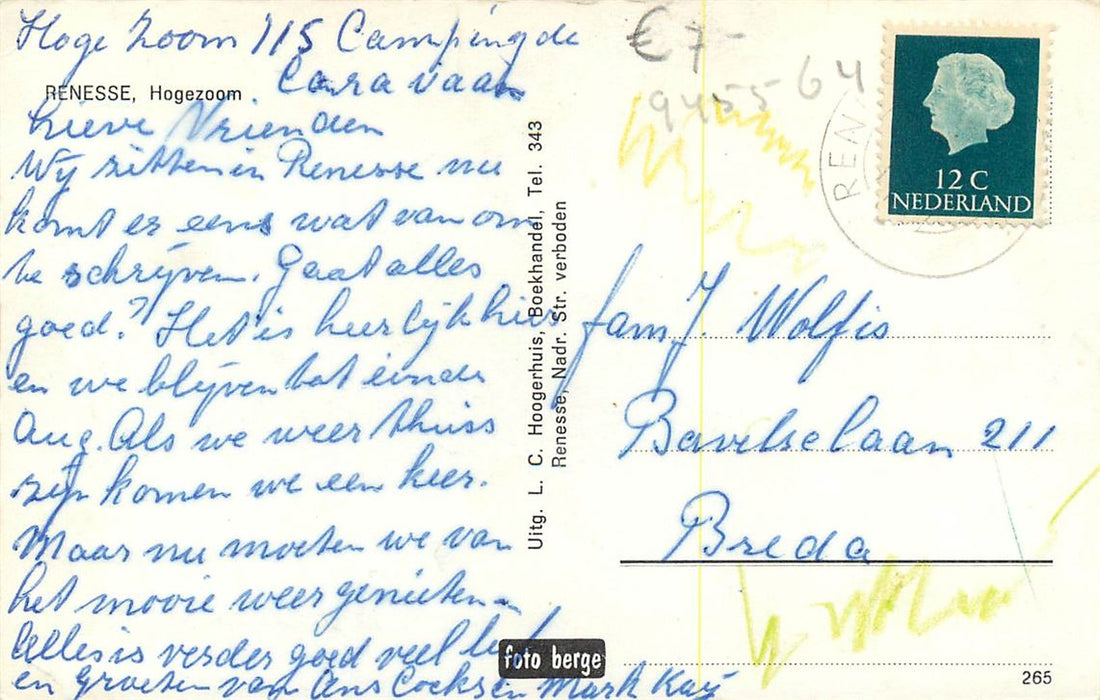 Hoge Zoom 115 Camping de
Caravaan
RENESSE, Hogezoom
Lieve Vrienden
Wy zitten in Renesse nu
komt er eens wat van om
te schrijven. Gaat alles
goed? Het is heerlijk hier
en we blijven tot einde
Aug. Als we weer thuis
zijn komen we een keer.
Maar nu moeten we van
het mooie weer genieten.
Alles is verder goed veel
en Groeten van Ans Cocks en Mark Kay
Uitg. L. C. Hoogerhuis, Boekhandel, Tel. 343
Renesse, Nadr. Str. verboden
foto berge
€ 7-
945564
REN
12 C
NEDERLAND
fam J. Wolfis
Bavelselaan 211
Breda
265